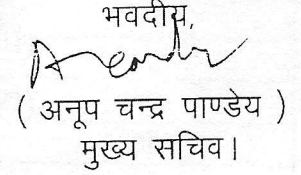 भवदीय,
( अनूप चन्द्र पाण्डेय )
मुख्य सचिव।